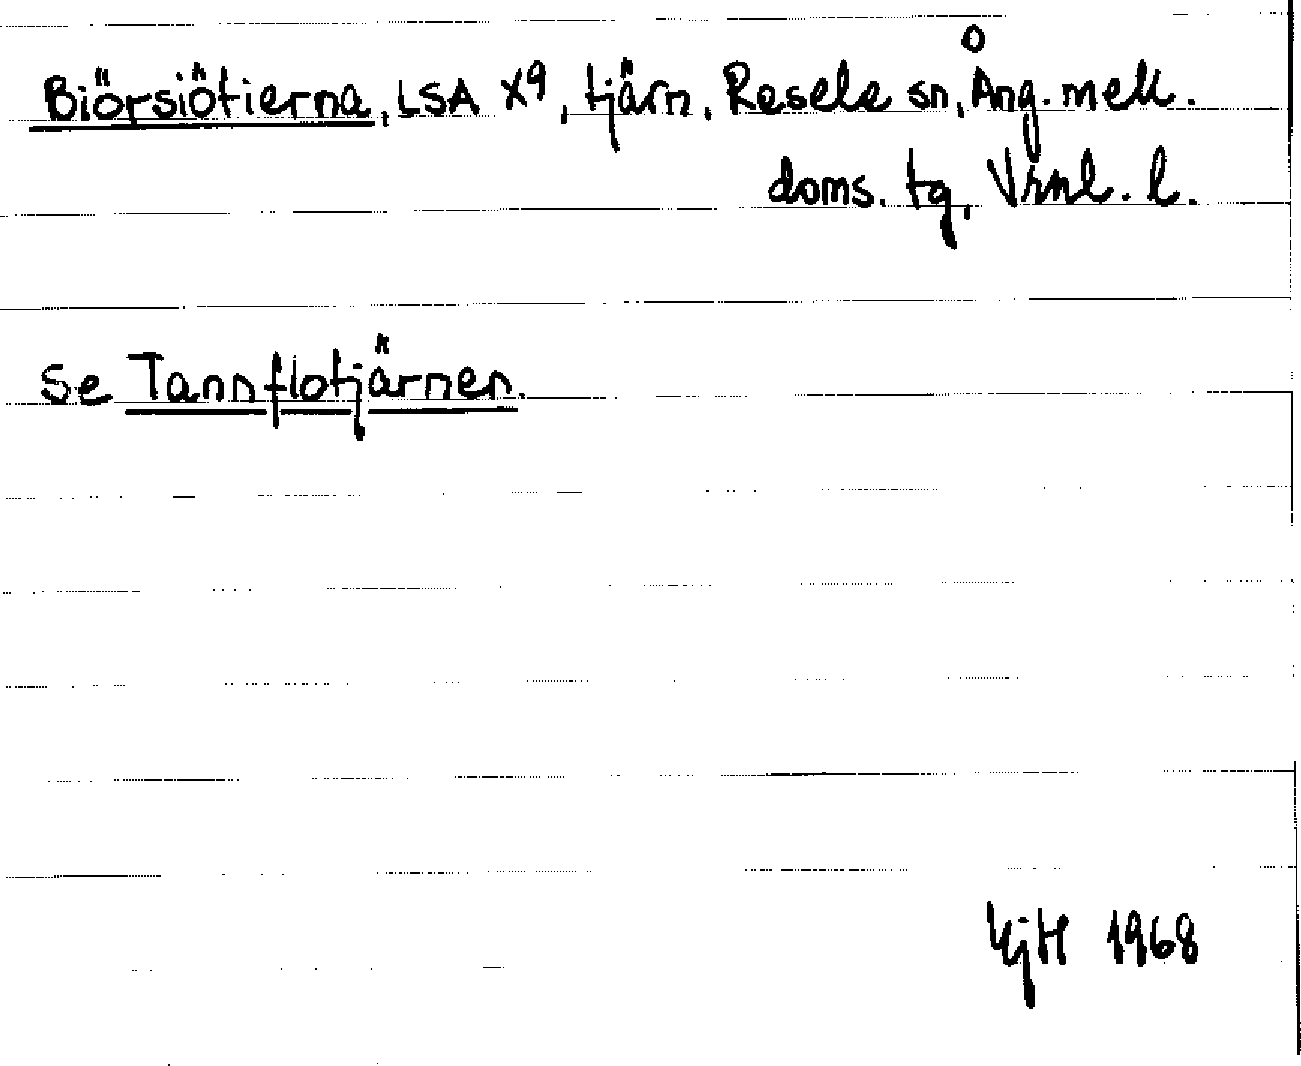 Biörsiötierna, LSA X9, tjärn, Resele sn, Ång. mell.
doms. tg, Vrnl. l.
se Tannflotjärnen.
KjH 1968